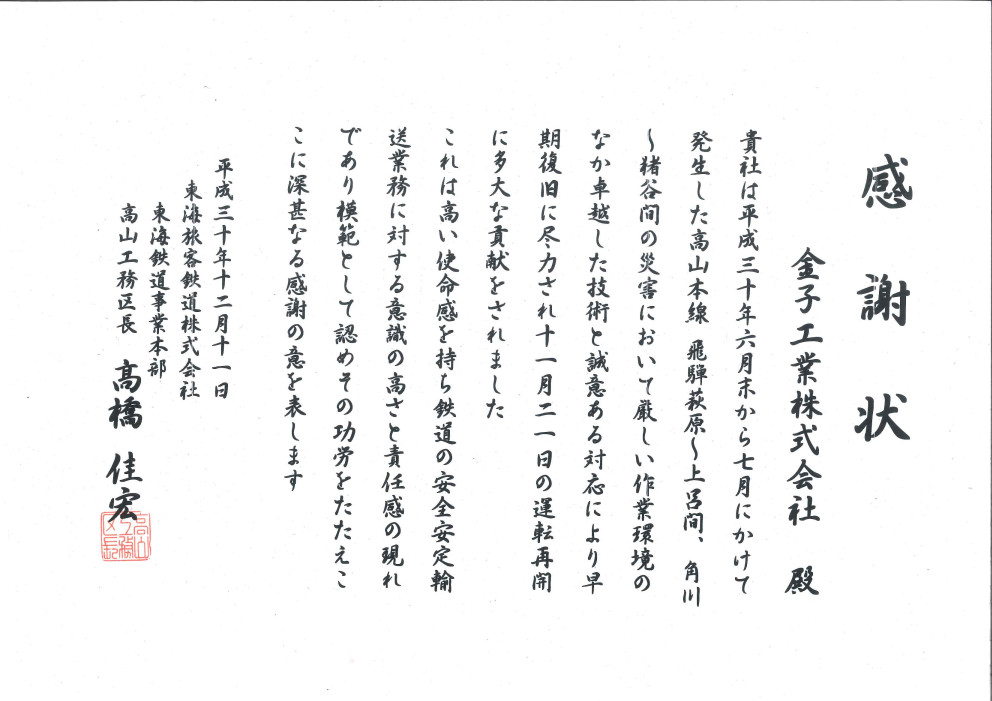 感謝状
金子工業株式会社 殿
貴社は平成三十年六月末から七月にかけて
発生した高山本線 飛騨萩原～上呂間、角川
～猪谷間の災害において厳しい作業環境の
なか卓越した技術と誠意ある対応により早
期復旧に尽力され十一月二一日の運転再開
に多大な貢献をされました
これは高い使命感を持ち鉄道の安全安定輸
送業務に対する意識の高さと責任感の現れ
であり模範として認めその功労をたたえこ
こに深甚なる感謝の意を表します
平成三十年十二月十一日
東海旅客鉄道株式会社
東海鉄道事業本部
高山工務区長 高橋 佳宏
高山工務区長